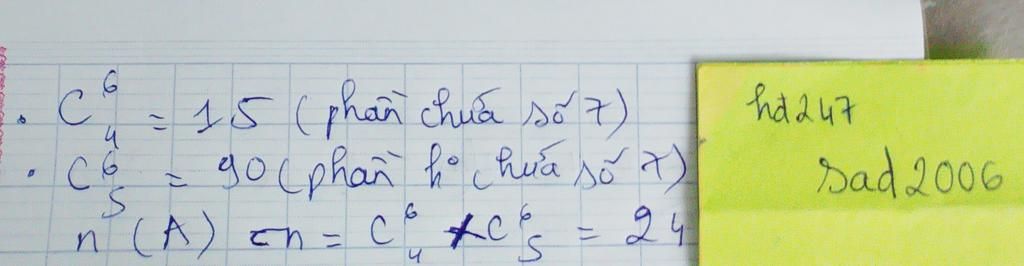 . C⁶₄ = 15 (phần chứa số 7)
. C⁶₅ = 90 (phần ko chứa số 7)
n (A) = C⁶₄ + C⁶₅ = 24
hd247
sad2006